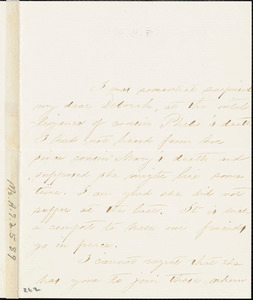 I was somewhat surprised
my dear Deborah, at the intel-
ligence of cousin Phebe's death
I had not heard from her
since cousin Mary's death and
supposed she might live some
time. I am glad she did not
suffer at the last. It is such
a comfort to have our friends
go in peace.
I cannot regret that she
has gone to join those whom
Ms.A.9.2 5.89
262